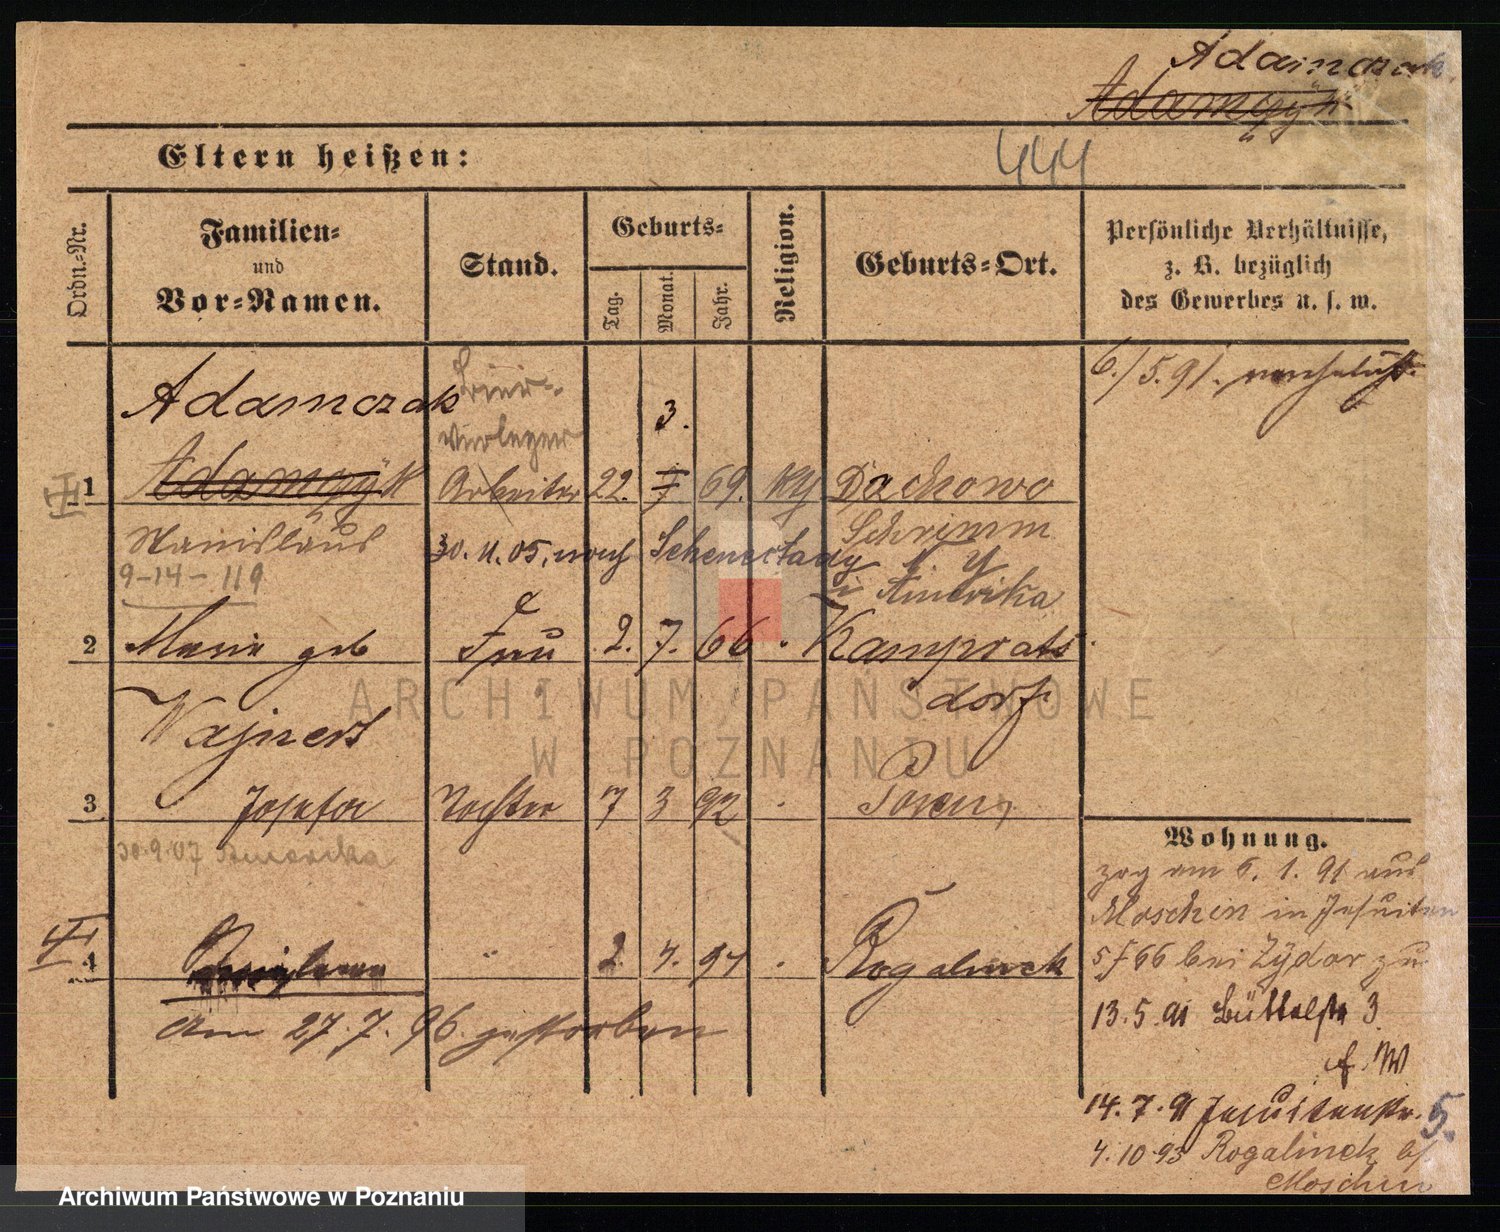 Adamczak
444
Eltern heißen:
Ordn.-Nr.
Familien-
und
Vor-Namen.
Stand.
Geburts-
Tag.
Monat.
Jahr.
Religion.
Geburts-Ort.
Persönliche Verhältnisse,
z. B. bezüglich
des Gewerbes u. s. w.
6./5.91. verehelicht
Adamczak
3.
1 Arbeiter 22. 69. Dachowo
Stanislaus
Schrimm
9-14-119
30.11.05. nach Schenectady N. Y
i Amerika
2 Marie geb Frau 2. 7. 66 Kamprats
dorf
Wajnert
3 Josefa Tochter 7 3 92 Posen
30.9.07 Amerika
Wohnung.
zog am 6. 1. 91 aus
Moschin in Jesuiten
bei Zydor zu
4 2 7. 94 Rogalinek
am 27.7.96 gestorben
13.5.91 Büttelstr 3
14.7.91 Jesuitenstr. 5.
4.10.93 Rogalinek b/
Moschin
ARCHIWUM PAŃSTWOWE
W POZNANIU
Archiwum Państwowe w Poznaniu